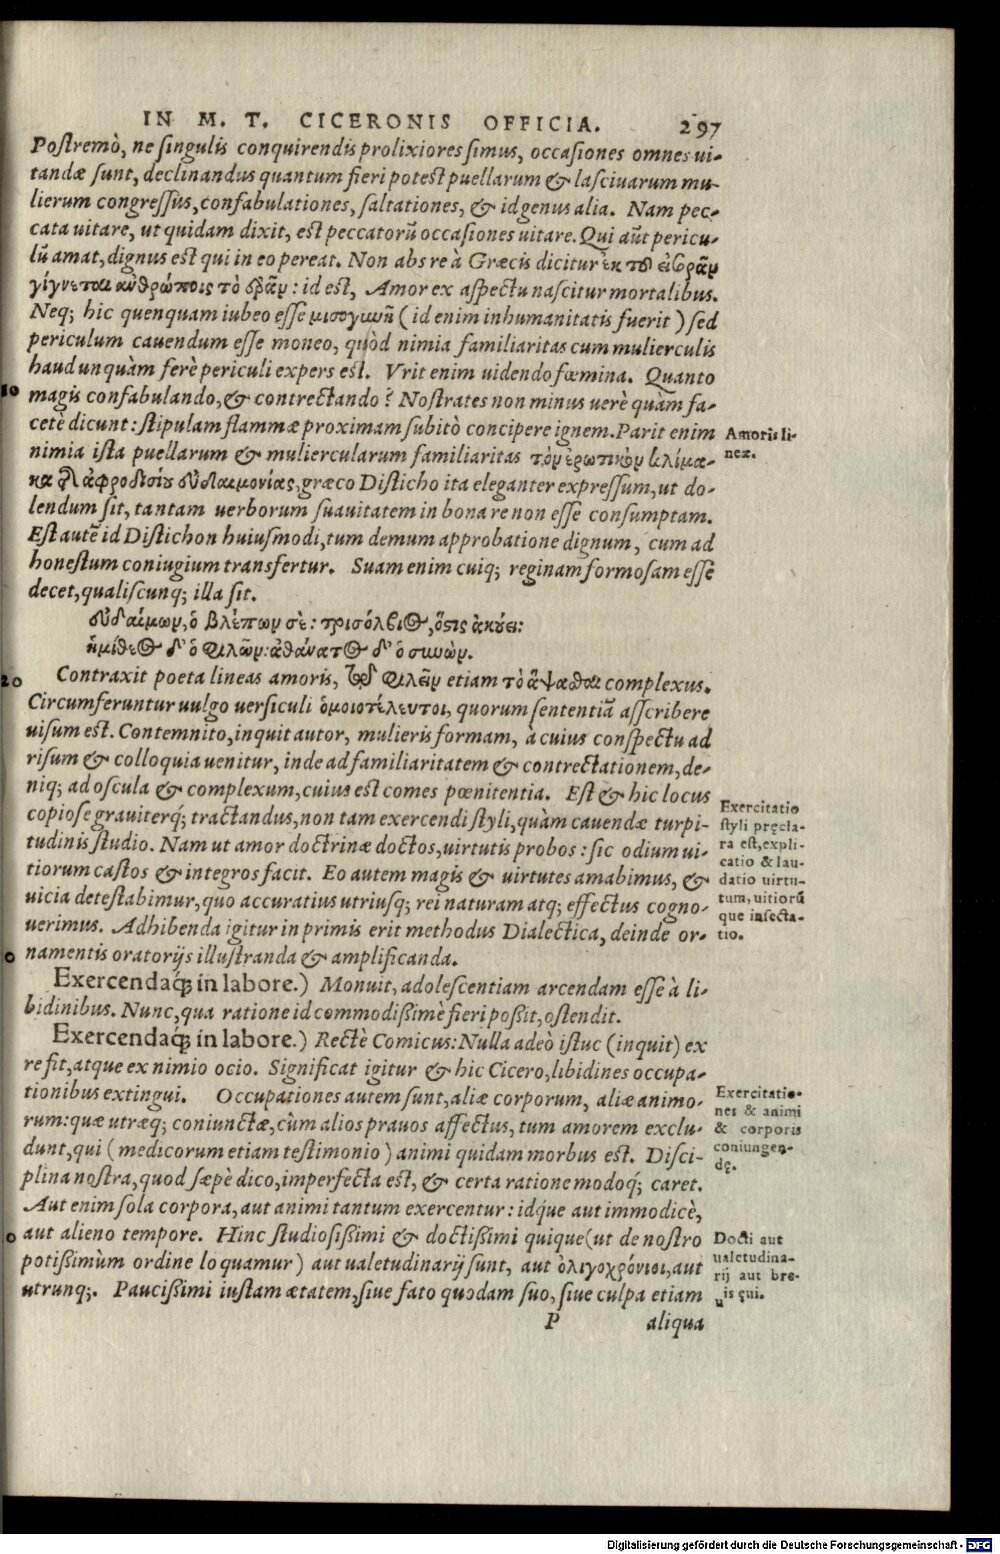 IN M. T. CICERONIS OFFICIA. 297
Postremò, ne singulis conquirendis prolixiores simus, occasiones omnes ui-
tandæ sunt, declinandus quantum fieri potest puellarum & lasciuarum mu-
lierum congressus, confabulationes, saltationes, & id genus alia. Nam pec-
cata uitare, ut quidam dixit, est peccatorũ occasiones uitare. Qui aũt pericu-
lũ amat, dignus est qui in eo pereat. Non abs re à Græcis dicitur ἐκ τοῦ εἰσορᾶν
γίγνεται ἀνθρώποις τὸ ἐρᾶν: id est, Amor ex aspectu nascitur mortalibus.
Neq; hic quenquam iubeo esse μισογυνῆ (id enim inhumanitatis fuerit) sed
periculum cauendum esse moneo, quòd nimia familiaritas cum mulierculis
haud unquàm ferè periculi expers est. Vrit enim uidendo fœmina. Quanto
10 magis confabulando, & contrectando? Nostrates non minus uerè quàm fa-
cetè dicunt: stipulam flammæ proximam subitò concipere ignem. Parit enim
Amoris li-
neæ.
nimia ista puellarum & muliercularum familiaritas τὸν ἐρωτικὸν κλίμα-
κα τῆς ἀφροδισίου εὐδαιμονίας, græco Disticho ita eleganter expressum, ut do-
lendum sit, tantam uerborum suauitatem in bona re non esse consumptam.
Est autẽ id Distichon huiusmodi, tum demum approbatione dignum, cum ad
honestum coniugium transfertur. Suam enim cuiq; reginam formosam esse
decet, qualiscunq; illa sit.
εὐδαίμων, ὁ βλέπων σὲ: τρισόλβιος, ὅστις ἀκούει:
ἡμίθεος δ' ὁ φιλῶν: ἀθάνατος δ' ὁ συνών.
20 Contraxit poeta lineas amoris, φιλεῖν etiam τὸ ἅψασθαι complexus.
Circumferuntur uulgo uersiculi ὁμοιοτέλευτοι, quorum sententiã asscribere
uisum est. Contemnito, inquit autor, mulieris formam, à cuius conspectu ad
risum & colloquia uenitur, inde ad familiaritatem & contrectationem, de-
niq; ad oscula & complexum, cuius est comes pœnitentia. Est & hic locus
copiose grauiterq́; tractandus, non tam exercendi styli, quàm cauendæ turpi-
tudinis studio. Nam ut amor doctrinæ doctos, uirtutis probos: sic odium ui-
tiorum castos & integros facit. Eo autem magis & uirtutes amabimus, &
uicia detestabimur, quo accuratius utriusq; rei naturam atq; effectus cogno-
uerimus. Adhibenda igitur in primis erit methodus Dialectica, deinde or-
Exercitatio
styli pręcla-
ra est, expli-
catio & lau-
datio uirtu-
tum, uitiorũ
que insecta-
tio.
0 namentis oratorijs illustranda & amplificanda.
Exercendaq́; in labore.) Monuit, adolescentiam arcendam esse à li-
bidinibus. Nunc, qua ratione id commodißimè fieri poßit, ostendit.
Exercendaq́; in labore.) Rectè Comicus: Nulla adeò istuc (inquit) ex
re fit, atque ex nimio ocio. Significat igitur & hic Cicero, libidines occupa-
tionibus extingui. Occupationes autem sunt, aliæ corporum, aliæ animo-
rum: quæ utræq; coniunctæ, cùm alios prauos affectus, tum amorem exclu-
dunt, qui (medicorum etiam testimonio) animi quidam morbus est. Disci-
plina nostra, quod sæpè dico, imperfecta est, & certa ratione modoq́; caret.
Exercitatio-
nes & animi
& corporis
coniungen-
dę.
Aut enim sola corpora, aut animi tantum exercentur: idq́ue aut immodicè,
0 aut alieno tempore. Hinc studiosißimi & doctißimi quique (ut de nostro
potißimùm ordine loquamur) aut ualetudinarij sunt, aut ὀλιγοχρόνιοι, aut
utrunq;. Paucißimi iustam ætatem, siue fato quodam suo, siue culpa etiam
Docti aut
ualetudina-
rij aut bre-
uis ęui.
P aliqua
Digitalisierung gefördert durch die Deutsche Forschungsgemeinschaft - DFG